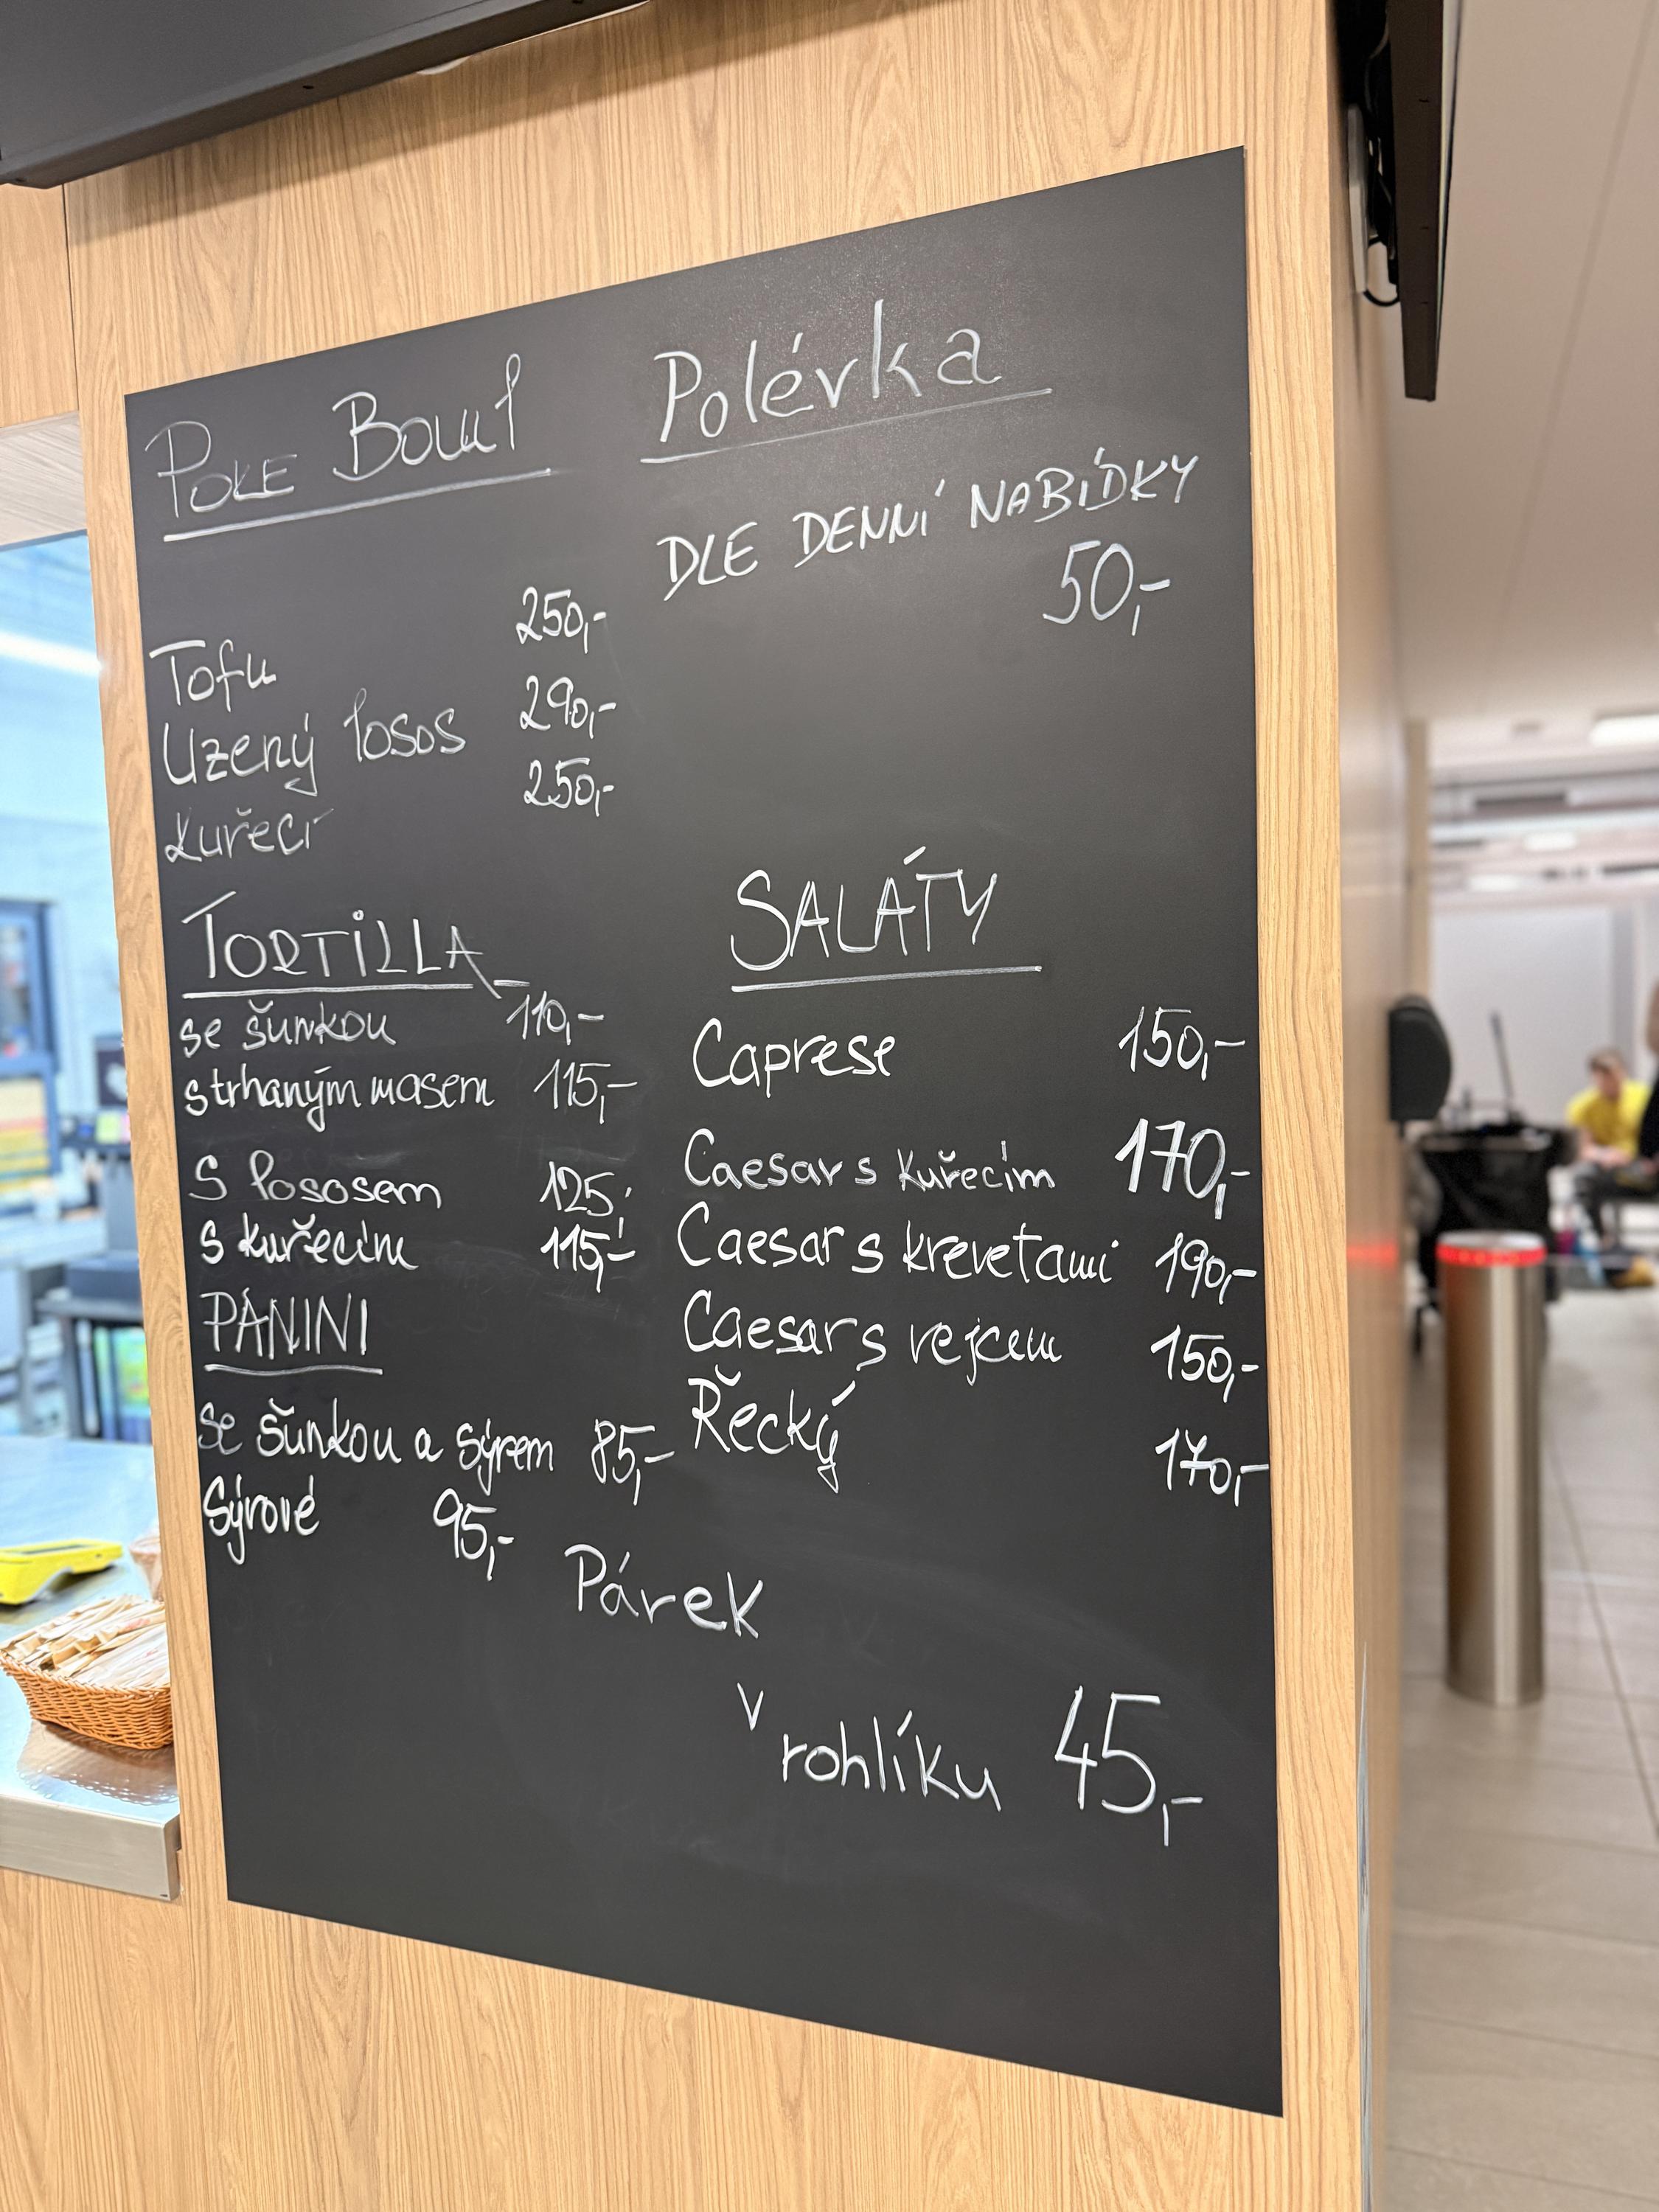 POKE Bowl
Tofu 250,-
Uzený losos 290,-
kuřecí 250,-
TORTILLA
se šunkou 110,-
s trhaným masem 115,-
S lososem 125,-
S kuřecím 115,-
PANINI
se šunkou a sýrem 85,-
Sýrové 95,-
Polévka
DLE DENNÍ NABÍDKY
50,-
SALÁTY
Caprese 150,-
Caesar s kuřecím 170,-
Caesar s krevetami 190,-
Caesar s vejcem 150,-
Řecký 170,-
Párek
v
rohlíku 45,-